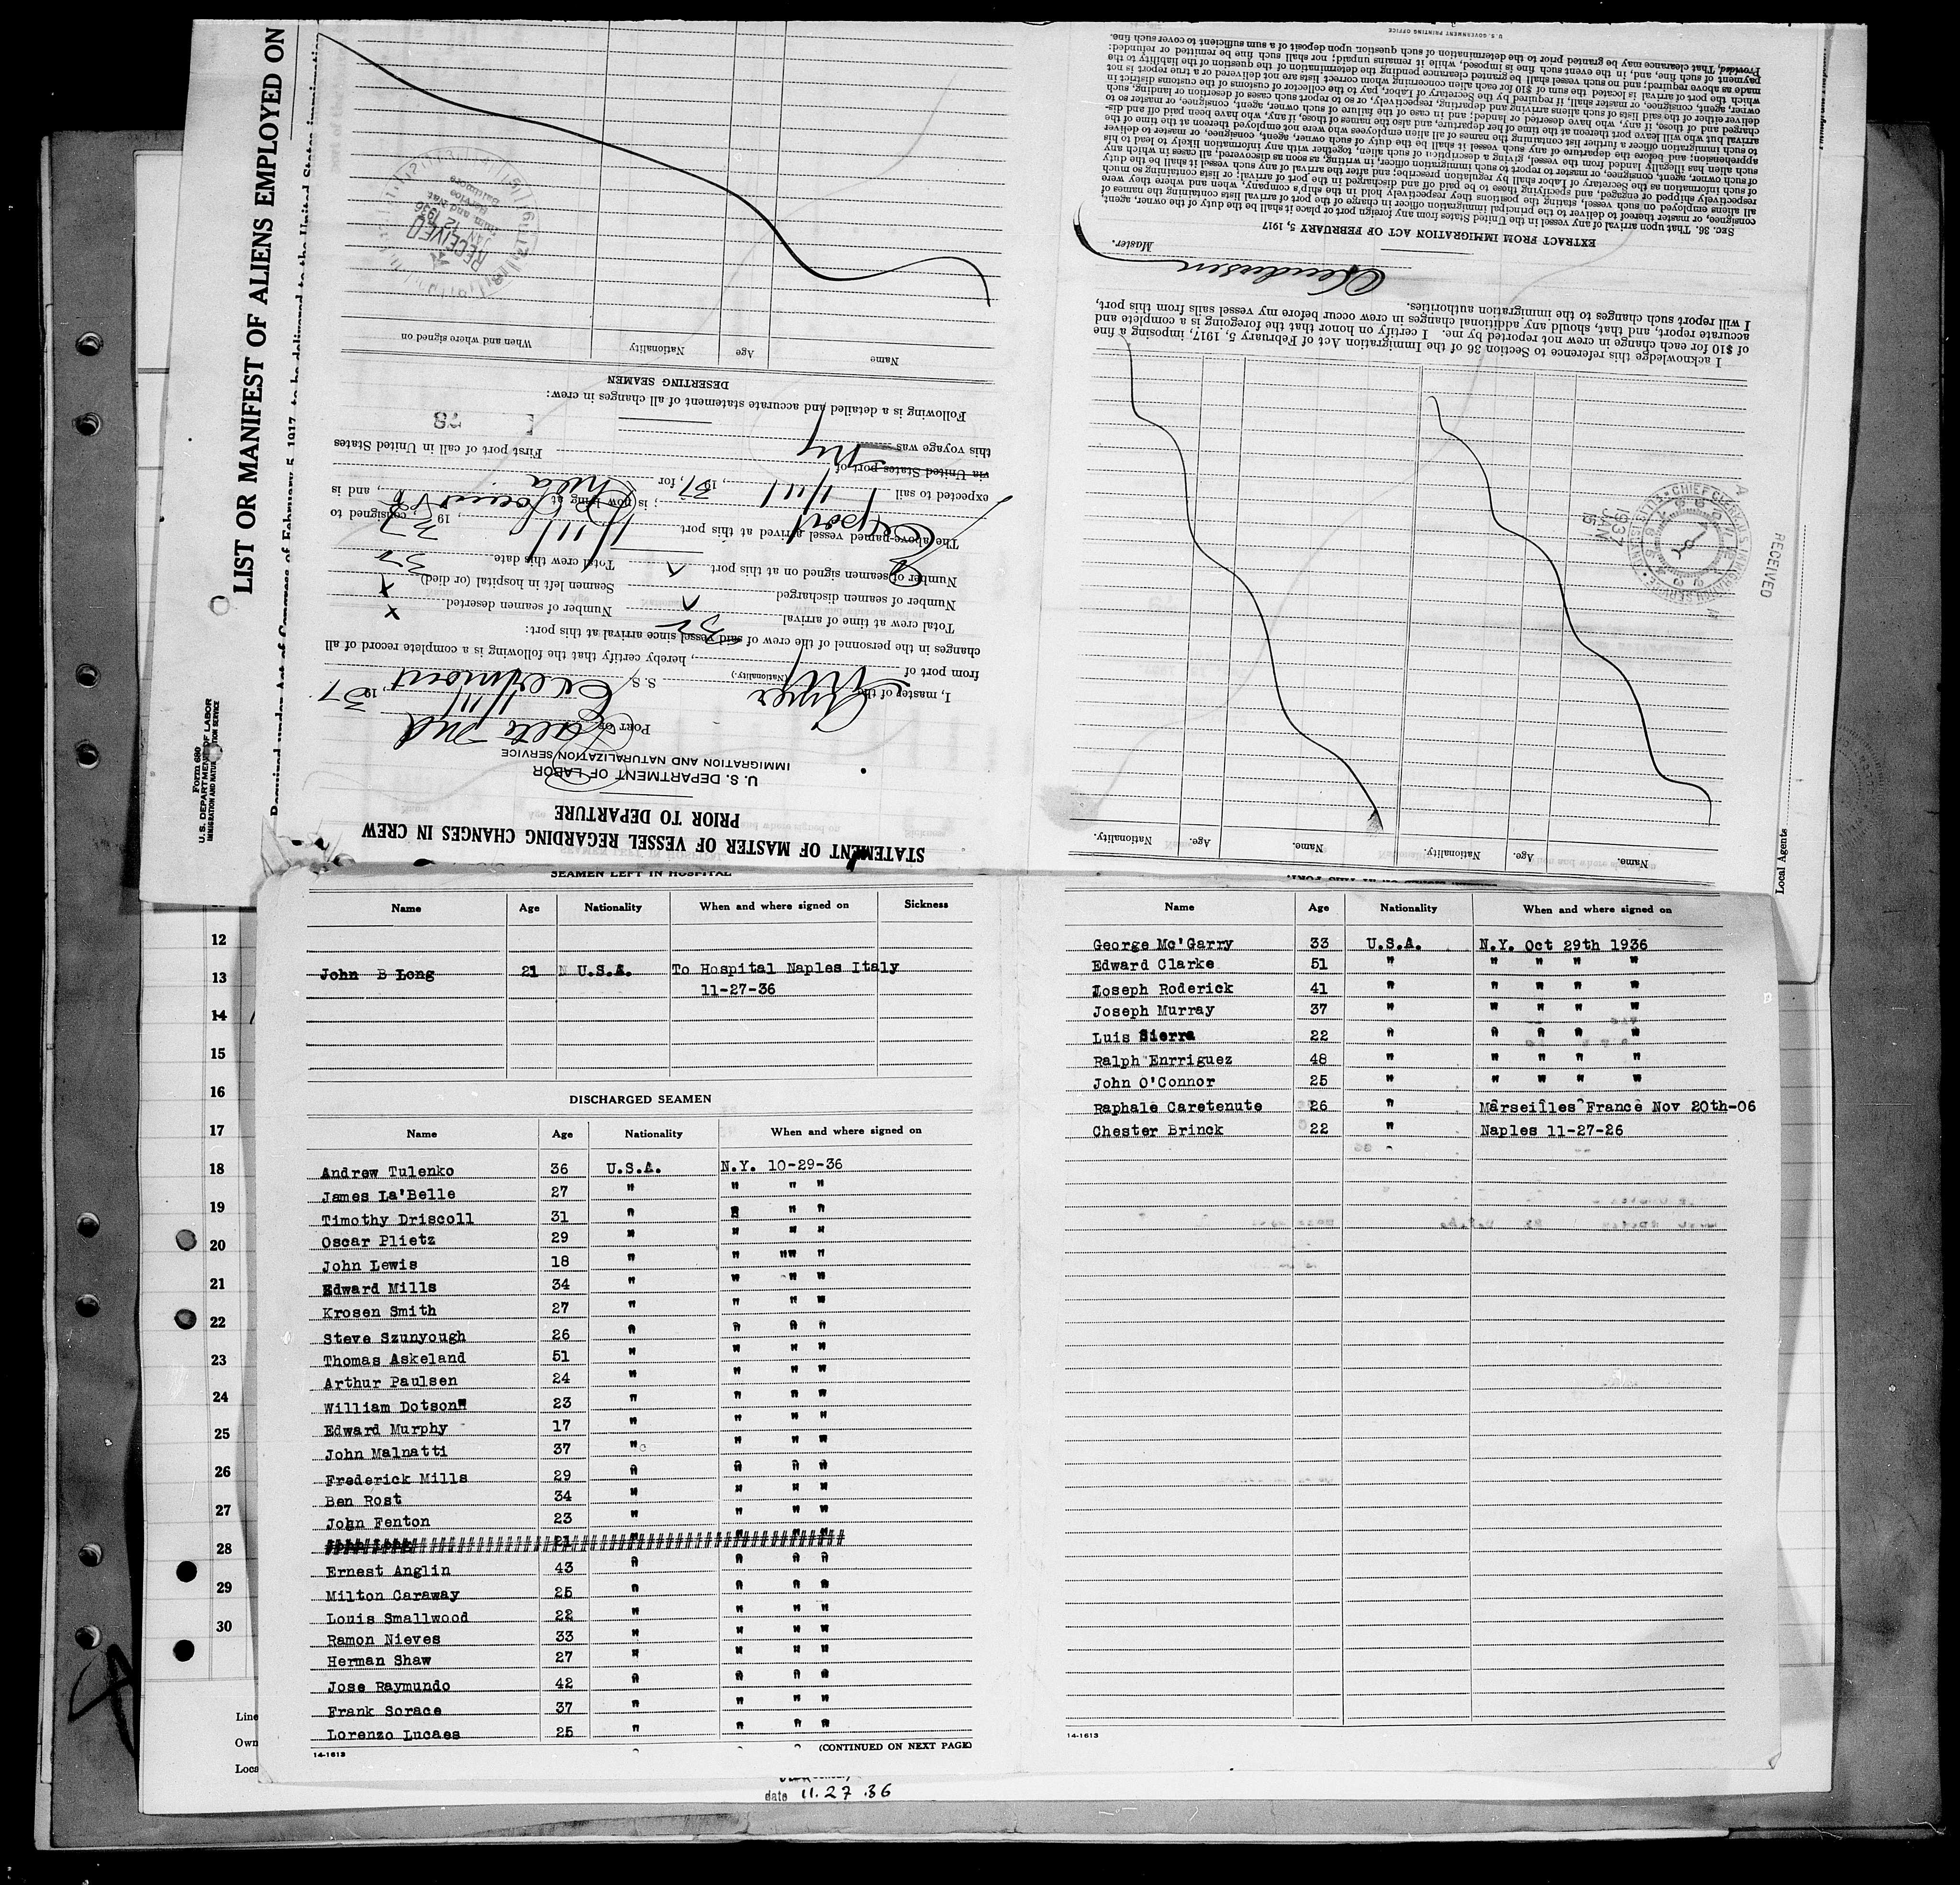 LIST OR MANIFEST OF ALIENS EMPLOYED ON
Required under Act of Congress of February 5, 1917, to be delivered to the United States immigration
Form 680
U.S. DEPARTMENT OF LABOR
IMMIGRATION AND NATURALIZATION SERVICE
STATEMENT OF MASTER OF VESSEL REGARDING CHANGES IN CREW
PRIOR TO DEPARTURE
U. S. DEPARTMENT OF LABOR
IMMIGRATION AND NATURALIZATION SERVICE
PORT OF Balto Md
1/11, 1937
I, master of the Amer S. S. Exermont
(Nationality.)
from port of NY, hereby certify that the following is a complete record of all
changes in the personnel of the crew of said vessel since arrival at this port:
Total crew at time of arrival 32 Number of seamen deserted x
Number of seamen discharged Seamen left in hospital (or died) x
Number of seamen signed on at this port Total crew this date 32
The above-named vessel arrived at this port 1/11, 1937, consigned to
Export ; is now lying at Locust Pt, and is
expected to sail 1/11, 1937, for Phila
via United States port of
this voyage was NY First port of call in United States
Following is a detailed and accurate statement of all changes in crew:
DESERTING SEAMEN
Name Age Nationality When and where signed on
RECEIVED
JAN 12 1937
Name. Age. Nationality. Name. Age. Nationality.
I acknowledge this reference to Section 36 of the Immigration Act of February 5, 1917, imposing a fine
of $10 for each change in crew not reported by me. I certify on honor that the foregoing is a complete and
accurate report, and that, should any additional changes in crew occur before my vessel sails from this port,
I will report such changes to the immigration authorities.
Master.
EXTRACT FROM IMMIGRATION ACT OF FEBRUARY 5, 1917
SEC. 36. That upon arrival of any vessel in the United States from any foreign port or place it shall be the duty of the owner, agent,
consignee, or master thereof to deliver to the principal immigration officer in charge of the port of arrival lists containing the names of
all aliens employed on such vessel, stating the positions they respectively hold in the ship's company, when and where they were
respectively shipped or engaged, and specifying those to be paid off and discharged in the port of arrival; or lists containing so much
of such information as the Secretary of Labor shall by regulation prescribe; and after the arrival of any such vessel it shall be the duty
of such owner, agent, consignee, or master to report to such immigration officer, in writing, as soon as discovered, all cases in which any
such alien has illegally landed from the vessel, giving a description of such alien, together with any information likely to lead to his
apprehension; and before the departure of any such vessel it shall be the duty of such owner, agent, consignee, or master to deliver
to such immigration officer a further list containing the names of all alien employees who were not employed thereon at the time of the
arrival but who will leave port thereon at the time of her departure, and also the names of those, if any, who have been paid off and dis-
charged and of those, if any, who have deserted or landed; and in case of the failure of such owner, agent, consignee, or master so to
deliver either of the said lists of such aliens arriving and departing, respectively, or so to report such cases of desertion or landing, such
owner, agent, consignee, or master shall, if required by the Secretary of Labor, pay to the collector of customs of the customs district in
which the port of arrival is located the sum of $10 for each alien concerning whom correct lists are not delivered or a true report is not
made as above required; and no such vessel shall be granted clearance pending the determination of the question of the liability to the
payment of such fine, and, in the event such fine is imposed, while it remains unpaid; nor shall such fine be remitted or refunded:
Provided, That clearance may be granted prior to the determination of such question upon deposit of a sum sufficient to cover such fine.
U. S. GOVERNMENT PRINTING OFFICE
RECEIVED
CHIEF CLERK U.S. IMMIGRATION SERVICE
1937
JAN
15
Local Agents
SEAMEN LEFT IN HOSPITAL
Name Age Nationality When and where signed on Sickness
John B Long 21 U.S.A. To Hospital Naples Italy
11-27-36
DISCHARGED SEAMEN
Name Age Nationality When and where signed on
Andrew Tulenko 36 U.S.A. N.Y. 10-29-36
James La'Belle 27 " " " "
Timothy Driscoll 31 " " " "
Oscar Plietz 29 " " " "
John Lewis 18 " " "" "
Edward Mills 34 " " " "
Krosen Smith 27 " " " "
Steve Szunyough 26 " " " "
Thomas Askeland 51 " " " "
Arthur Paulsen 24 " " " "
William Dotson 23 " " " "
Edward Murphy 17 " " " "
John Malnatti 37 " " " "
Frederick Mills 29 " " " "
Ben Rost 34 " " " "
John Fenton 23 " " " "
21
Ernest Anglin 43 " " " "
Milton Caraway 25 " " " "
Louis Smallwood 22 " " " "
Ramon Nieves 33 " " " "
Herman Shaw 27 " " " "
Jose Raymundo 42 " " " "
Frank Sorace 37 " " " "
Lorenzo Lucaes 25 " " " "
14-1613 (CONTINUED ON NEXT PAGE)
Name Age Nationality When and where signed on
George Mc'Garry 33 U.S.A. N.Y. Oct 29th 1936
Edward Clarke 51 " " " " "
Ioseph Roderick 41 " " " " "
Joseph Murray 37 " " " " "
Luis Sierra 22 " " " " "
Ralph Enrriguez 48 " " " " "
John O'Connor 25 " " " " "
Raphale Caretenute 26 " Marseilles France Nov 20th-06
Chester Brinck 22 " Naples 11-27-26
14-1613
12
13
14
15
16
17
18
19
20
21
22
23
24
25
26
27
28
29
30
Line
Own
Loca
date 11.27.36